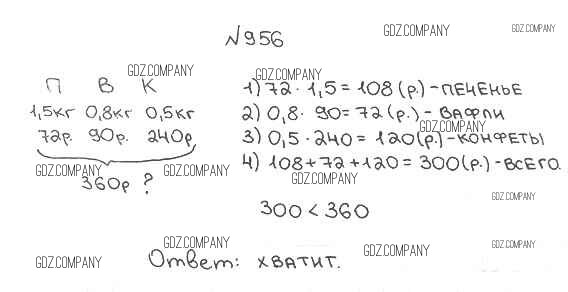 №956
GDZ.COMPANY
GDZ.COMPANY
GDZ.COMPANY
GDZ.COMPANY
П В К
1,5кг 0,8кг 0,5кг
72р. 90р. 240р
360р ?
1) 72 · 1,5 = 108 (р.) - ПЕЧЕНЬЕ
2) 0,8 · 90 = 72 (р.) - ВАФЛИ
GDZ.COMPANY
3) 0,5 · 240 = 120 (р.) - КОНФЕТЫ
4) 108 + 72 + 120 = 300 (р.) - ВСЕГО.
GDZ.COMPANY
GDZ.COMPANY
GDZ.COMPANY
GDZ.COMPANY
300 < 360
GDZ.COMPANY
GDZ.COMPANY
GDZ.COMPANY
GDZ.COMPANY
Ответ: ХВАТИТ.